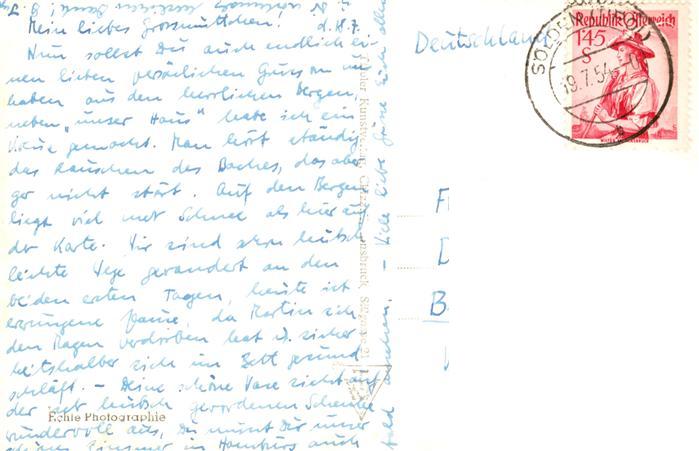 Mein liebes Grossmuttchen! d. 18.7.
Nun sollst Du auch endlich ei-
nen lieben persönlichen Gruss von uns
haben aus den herrlichen Bergen,
neben "unser Haus" habe ich ein
gemacht. Man hört ständig
das Rauschen des Baches, das aber
gar nicht stört. Auf den Bergen
liegt viel mehr Schnee als hier auf
der Karte. Wir sind schon hübsch
leichte Wege gewandert an den
beiden ersten Tagen, heute ist
errungene Pause, da Martin sich
den Magen verdorben hat u. sicher
heitshalber sich im Bett gesund
schläft. – Deine schöne Vase sieht auf
der sehr hübsch gewordenen
wundervoll aus, Du musst Dir unser
in Hamburg auch
bald ansehen. – Viele liebe Grüsse Euch allen
Echte Photographie
Tiroler Kunstverlag
Innsbruck
Deutschland
Republik Österreich
1.45
SÖLDEN
19.7.54
S
b
F
B